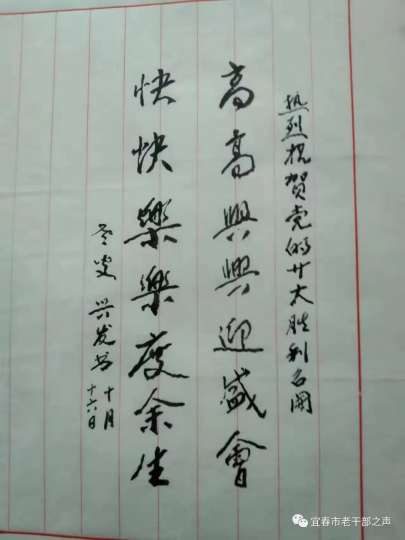 热烈祝贺党的廿大胜利召開
高高興興迎盛會
快快樂樂度余生
老叟 兴发书
十月
十六日
宜春市老干部之声